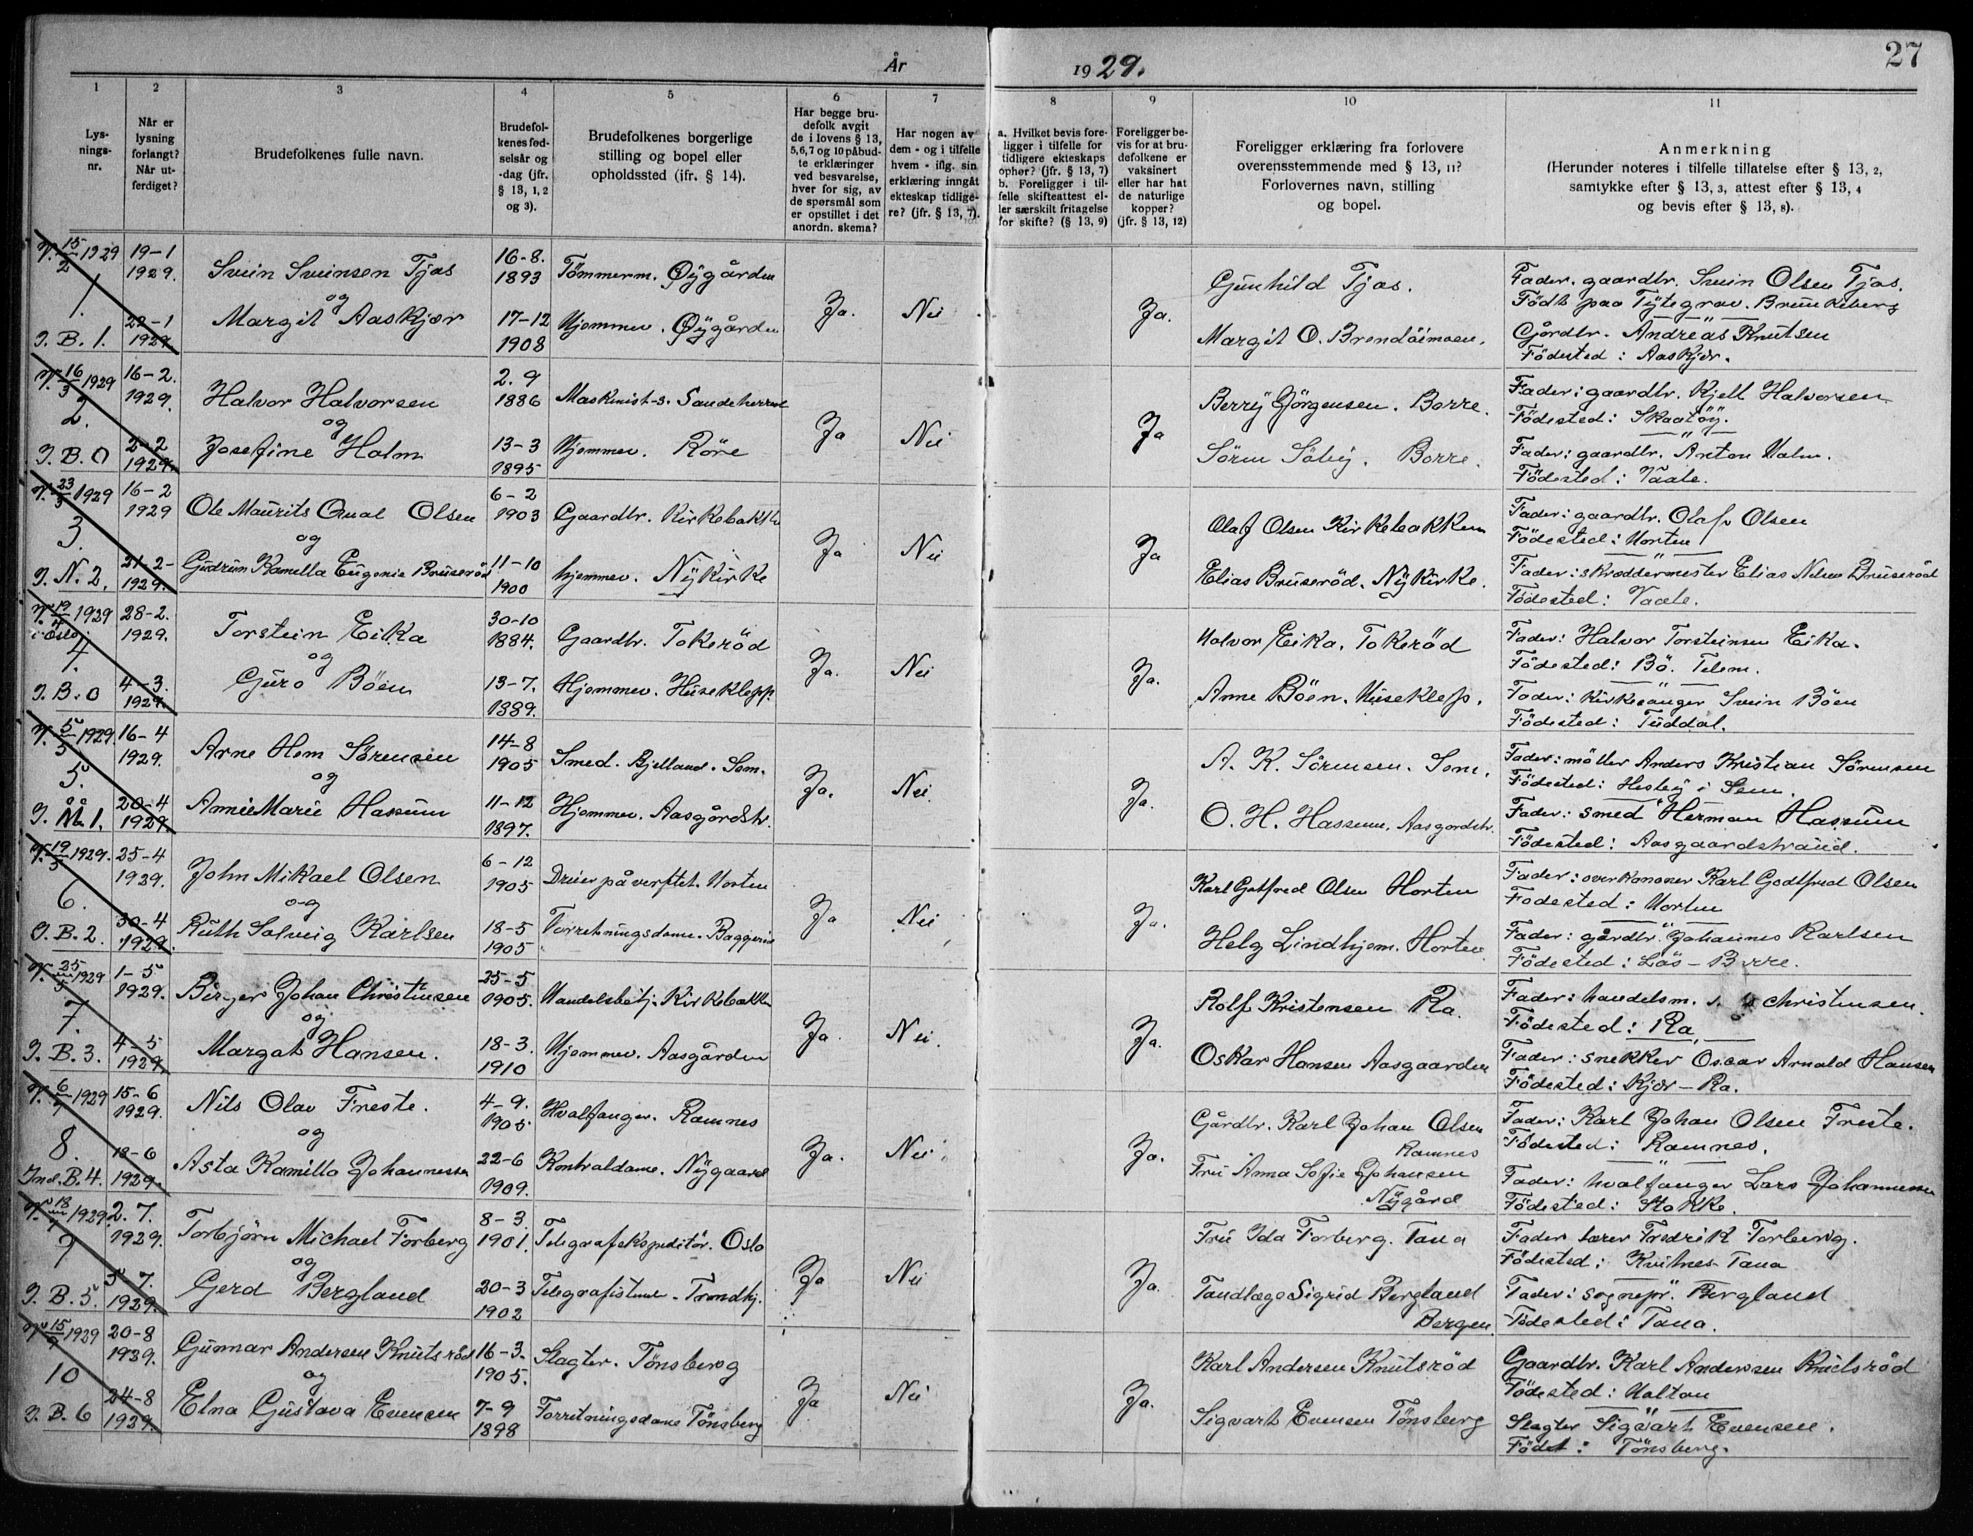 År 1929.
27
1 2 3 4 5 6 7 8 9 10 11
Lysningsnr.
Når er lysning forlangt? Når utferdiget?
Brudefolkenes fulle navn.
Brudefolkenes fødselsår og -dag (jfr. § 13, 1, 2 og 3).
Brudefolkenes borgerlige stilling og bopel eller opholdssted (ifr. § 14).
Har begge brudefolk avgit de i lovens § 13, 5, 6, 7 og 10 påbudte erklæringer ved besvarelse, hver for sig, av de spørsmål som er opstillet i det anordn. skema?
Har nogen av dem - og i tilfelle hvem - iflg. sin erklæring inngått ekteskap tidligere? (jfr. § 13, 7).
a. Hvilket bevis foreligger i tilfelle for tidligere ekteskaps ophør? (jfr. § 13, 7) b. Foreligger i tilfelle skifteattest eller særskilt fritagelse for skifte? (§ 13, 9)
Foreligger bevis for at brudefolkene er vaksinert eller har hat de naturlige kopper? (jfr. § 13, 12)
Foreligger erklæring fra forlovere overensstemmende med § 13, 11? Forlovernes navn, stilling og bopel.
Anmerkning (Herunder noteres i tilfelle tillatelse efter § 13, 2, samtykke efter § 13, 3, attest efter § 13, 4 og bevis efter § 13, 8).
V. 15/2 1929 19-1 1929. Svein Sveinsen Tjas 16-8. 1893 Tömmerm. Øygården Gunhild Tjas. Fader. gaardbr. Svein Olsen Tjas.
Födt paa Tytegrav. Brunkeberg
1. og Ja. Nei Ja.
J. B. 1. 22-1 1929. Margit Aaskjær 17-12 1908 Hjemmev. Øygården Margit O. Brendäimoen. Gårdbr. Andreas Knutsen
Födested: Aaskjær.
V. 16/3 1929 16-2. 1929. Halvor Halvorsen 2. 9 1886 Maskinist-s. Sandeherred Berry Jörgensen. Borre. Fader: gaardbr. Kjell Halvorsen
Födested: Skaatöy.
2. og Ja Nei Ja
J. B. 0 2-2 1929. Josefine Holm 13-3 1895 Hjemmev. Röre Sören Söby. Borre. Fader: gaardbr. Anton Holm.
Födested: Vaale.
V. 23/3 1929 16-2 1929 Ole Maurits Qual Olsen 6-2 1903 Gaardbr. Kirkebakken Olaf Olsen Kirkebakken Fader: gaardbr. Olaf Olsen
Födested: Horten
3. og Ja Nei Ja
J. N. 2. 21-2- 1929. Gudrun Kamella Eugenie Bruseröd 11-10 1900 hjemmev. Nykirke Elias Bruseröd. Nykirke. Fader: skreddermester Elias Nelsen Bruseröd
Födested: Vaale.
V. 19/4 1929 i Oslo. 28-2. 1929. Torstein Eika 30-10 1884. Gaardbr. Tokeröd Halvor Eika. Tokeröd Fader: Halvor Torsteinsen Eika.
Födested: Bö. Telem.
4. og Ja. Nei Ja.
J. B. 0 4-3. 1929. Guro Böen 13-7. 1889. Hjemmev. Huseklepp. Anne Böen. Huseklep. Fader: Kirkesanger Svein Böen
Födested: Tuddal.
V. 5/5 1929. 16-4 1929. Arne Hem Sörensen 14-8 1905 Smed. Bjelland. Sem. A. K. Sörensen. Sem. Fader: möller Anders Kristian Sörensen
Födested: Hesby i Sem.
5. og Ja. Nei. Ja.
J. Åå 1. 20-4 1929. Annie Marie Hassum 11-12 1897. Hjemmev. Aasgårdstr. O. H. Hassum. Aasgardstr. Fader: smed Herman Hassum
Födested: Aasgaardstrand.
V. 19/5 1929. 25-4 1929. John Mikael Olsen 6-12 1905 Dreier på verftet. Horten Karl Gotfred Olsen Horten Fader: overkanoner Karl Godtfred Olsen
Födested: Horten
6. og Ja Nei Ja.
J. B. 2. 30-4 1929. Ruth Solveig Karlsen 18-5 1905 Forretningsdame. Baggerud Helg Lindhjem. Horten Fader: gårdbr. Johannes Karlsen
Födested: Lös-Borre.
V. 25/5 1929 1-5 1929. Birger Johan Christensen 25-5 1905. Handelsbetj. Kirkebakken Rolf Kristensen Ra. Fader: handelsm. Christensen.
Födested: Ra
7. og Ja Nei. Ja.
J. B. 3. 4-5 1929. Margat Hansen. 18-3. 1910 Hjemmev. Aasgården Oskar Hansen Aasgaarden Fader: snekker Oscar Arnald Hansen
Födested: Kjær-Ra.
V. 6/7 1929 15-6 1929. Nils Olav Freste. 4-9. 1905. Hvalfanger. Ramnes Gårdbr. Karl Johan Olsen Ramnes Fader: Karl Johan Olsen Freste.
Födested: Ramnes.
8. og Ja. Nei. Ja.
Ind. B. 4. 18-6 1929. Asta Kamilla Johannessen 22-6 1909. Kontraldame. Nygaard Fru Anna Sofie Johansen Nygård Fader: hvalfanger Lars Johannessen
Födested: Stokke.
V. 13/7 1929 2. 7. 1929. Torbjörn Michael Forberg 8-3. 1901. Telegrafekspeditör. Oslo Fru Ida Forberg. Tana Fader lærer Fredrik Forberg.
Födested: Kvitnes Tana
9 og Ja Nei Ja.
J. B. 5. 5 7. 1929. Gerd Bergland 20-3 1902 Telegrafistinne - Trondhj. Tandlæge Sigrid Bergland Bergen. Fader: sognepr. Bergland
Födested: Tana.
V. 15/9 1929 20-8 1929. Gunnar Andersen Knutsröd 16-3. 1905. Slagter. Tönsberg Karl Andersen Knutsröd Gaardbr. Karl Andersen Knutsröd
Födested: Haltan
10 og Ja Nei Ja.
J. B. 6 24-8 1929. Elna Gustava Evensen 7-9 1898 Forretningsdame Tönsberg Sigvart Evensen Tönsberg Slagter Sigvart Evensen.
Födet: Tönsberg.